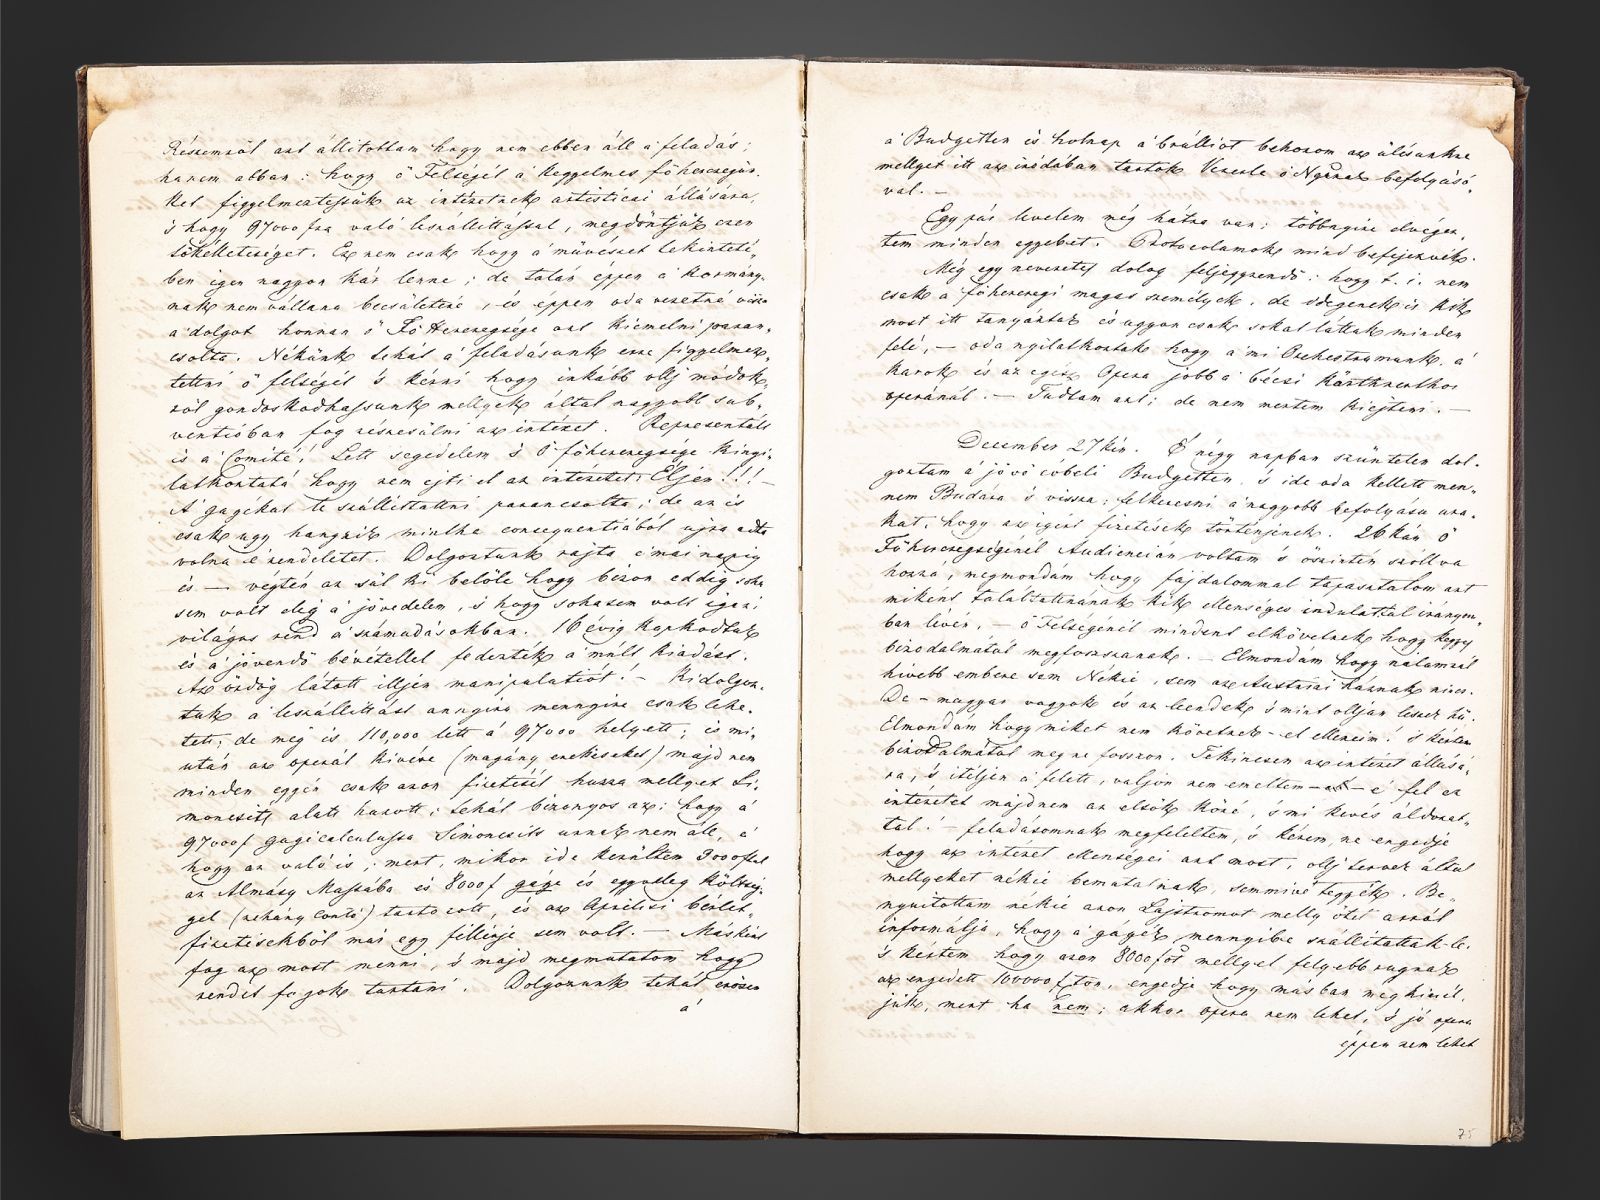 Részemről azt állítottam hogy nem ebben áll a' feladás;
hanem abban: hogy ő Felségét a' kegyelmes főherczegün-
ket figyelmeztessük az intézetnek artisticai állására,
's hogy 97000 fra való leszállittással, megdöntjük ezen
tökélletességet. Ez nem csak hogy a művészet tekinteté-
ben igen nagyon kár lenne; de talán éppen a' kormány-
nak nem vállana becsületére, és éppen oda vezetné vissza
a' dolgot honnan ő Fő Herczegsége azt kiemelni paran-
csolta. Nékünk tehát a' feladásunk erre figyelmez-
tetni ő felségét 's kérni hogy inkább olly módok-
ról gondoskodhassunk mellyek által nagyobb sub-
ventióban fog részesülni az intézet. Representált
is a' Comité! Lett segedelem 's Ő főherczegsége kinyi-
latkoztatá hogy nem ejti el az intézetet: Éljen!!! —
A' gagékat le szállittattni parancsolta; de az is
csak ugy hangzik mintha consequentiából ujra adta
volna é rendeletet. Dolgoztunk rajta é mai napig
és — végtén az sül ki belőle hogy bizon eddig soha
sem volt elég a' jövedelem, 's hogy sohasem volt igazi
világos rend a' számadásokban. 16 évig kapkodtak
és a' jövendő bévétellel fedezték a' múlt kiadást.
Az ördög látott illyen manipulatiót. — Kidolgoz-
tuk a' leszállittást annyira mennyire csak lehe-
tett; de még is 110,000 lett a' 97000 helyett; is mi-
után az operát kivéve (magány énekeseket) majd nem
minden eggén csak azon fizetését huzza mellyet Si-
moncsits alatt huzott; tehát bizonyos az: hogy a'
97000 f gagecalculussa Simoncsits urnak nem áll, a'
hogy az való is; mert, mikor ide kerültem 3000 ftal
az Almásy Massába és 8000 f gage és eggyveleg költség-
gel (néhány Contó) tartozott, és az Áprilisi bérlet-
fizetésekből már egy fillérje sem volt. — Máskint
fog az most menni, 's majd megmutatom hogy
rendet fogok tartani. Dolgozunk tehát erősen
a'
a' Budgetten és holnap a' brulliot behozom az ülésünkre
mellyet itt az irodában tartok Vezerle ő Ngának befolyásá-
val. —
Egy pár levelem még hátra van; többnyire elvégez-
tem minden eggyebet. Protocolamok mind befejezvék.
Még egy nevezetes dolog feljegyzendő: hogy t. i. nem
csak a' főherczegi magas személyek, de idegenek is kik
most itt tanyáztak és ugyan csak sokat láttak minden
felé, — oda nyilatkoztak hogy a' mi Orchestrumunk, a'
karok és az egész Opera jobb a' bécsi Kärthnerthor
operánál. — Tudtam azt; de nem mertem kiejteni. —
December 27 kén. É négy napban szüntelen dol-
goztam a' jövő évbeli Budgetten. 's ide oda kellett men-
nem Budára 's vissza: felkeresni a' nagyobb befolyásu ura-
kat, hogy az igért fizetések történjenek. 26 kán Ő
Főherczegségénél Audiencián voltam 's őszintén szóllva
hozzá, megmondám hogy fájdalommal tapasztalom azt
mikint találtatnának kik ellenséges indulattal irányom-
ban lévén, — ő Felségénél mindent elkövetnek hogy kegyes
bizodalmától megfosszanak. — Elmondám hogy nálamnál
hívebb embere sem Nékie, sem az Austriai háznak nincs.
De — magyar vagyok és az leendek 's mint ollyan leszek hű.
Elmondám hogy miket nem követnek-el elleneim! 's kértem
bizodalmától meg ne fosszon. Tekintsen az intézet állásá-
ra, 's itéljen a' felett, valjon nem emeltem — azt — é fel ez
intézetet majdnem az elsők közé, 's mi kevés áldozat-
tal! — feladásomnak megfeleltem, 's kérem, ne engedje
hogy az intézet ellenségei azt most, olly tervek által
mellyeket nékie bemutatnak, semmivé tegyék. Be-
nyujtottam nékie azon Lajstromot melly őtet arról
informálja, hogy a' gagék mennyibe szállitattak-le.
's kértem hogy azon 8000 fot mellyel felyebb rugnak
az engedett 100000 fton, engedje hogy másban meg kimél-
jük, mert ha nem; akkor opera nem lehet, 's jó opera
éppen nem lehet
75